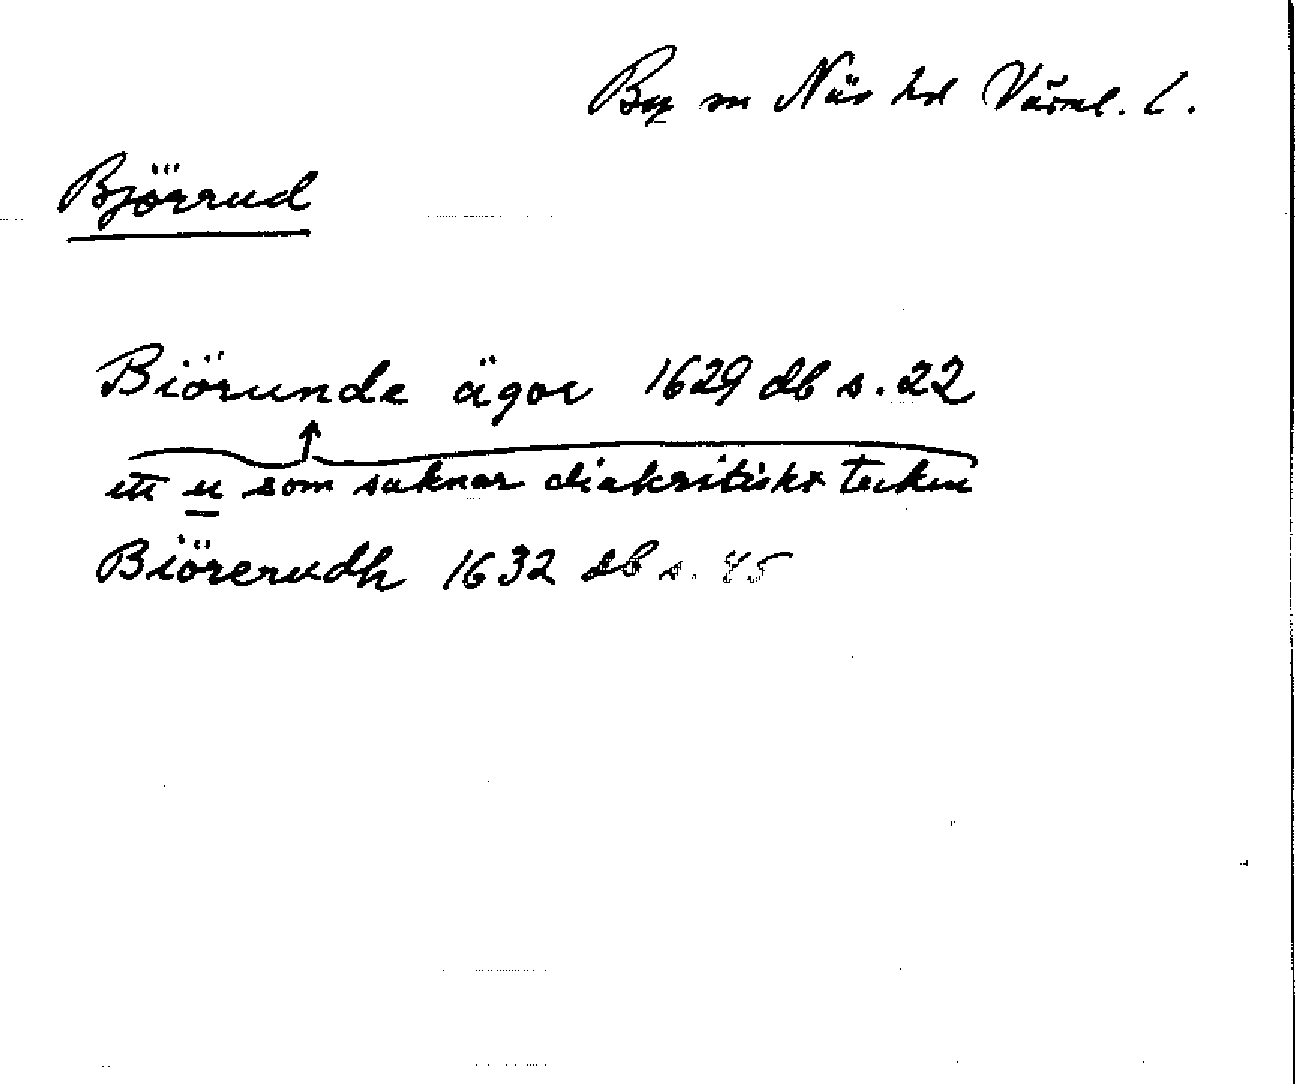 By sn Näs hd Värml. l.
Björrud
Biörunde ägor 1629 db s. 22
ett u som saknar diakritiskt tecken
Biörerudh 1632 db s. 45